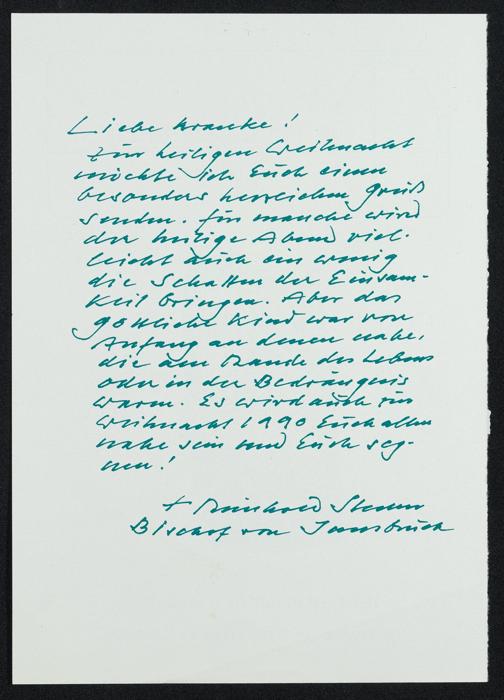 Liebe Kranke!
Zur heiligen Weihnacht
möchte ich Euch einen
besonders herzlichen Gruß
senden. Für manche wird
der heilige Abend viel-
leicht auch ein wenig
die Schatten der Einsam-
keit bringen. Aber das
göttliche Kind war von
Anfang an denen nahe,
die am Rande des Lebens
oder in der Bedrängnis
waren. Es wird auch zur
Weihnacht 1990 Euch allen
nahe sein und Euch seg-
nen!
+ Reinhold Stecher
Bischof von Innsbruck